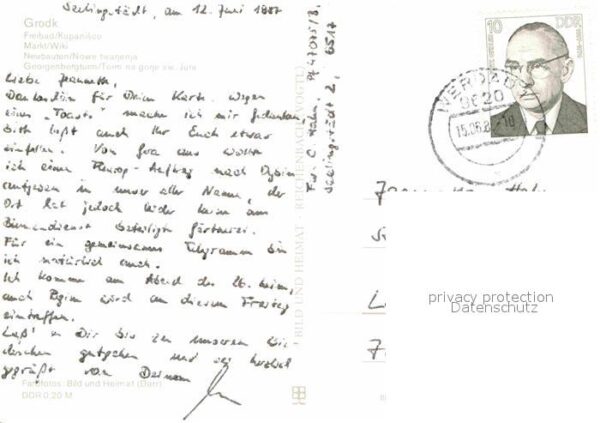 Seelingstädt, am 12. Juni 1987
Grodk
Freibad/Kupanišćo
Markt/Wiki
Neubauten/Nowe twarjenja
Georgenbergturm/Torm na gorje sw. Jura
Liebe Jeannette,
Dankeschön für Deine Karte. Wegen
eines "Toasts" mache ich mir Gedanken,
bitte laßt auch Ihr Euch etwas
einfallen. Von Gera aus wollte
ich einen Fleurop-Auftrag nach Oybin
aufgeben in unser aller Namen, der
Ort hat jedoch leider keine am
Blumendienst beteiligte Gärtnerei.
Für ein gemeinsames Telegramm bin
ich natürlich auch.
Ich komme am Abend des 26. heim,
auch wird an diesem Freitag
eintreffen.
Laß' es Dir bis zu unserem
gutgehen und sei herzlich
gegrüßt von Deinem
Farbfotos: Bild und Heimat (Darr)
DDR 0,20 M
BILD UND HEIMAT · REICHENBACH (VOGTL)
Hahn, PF 47045/B,
Seelingstädt 2, 6517
10 DDR
WERDAU 1
9620
privacy protection
Datenschutz